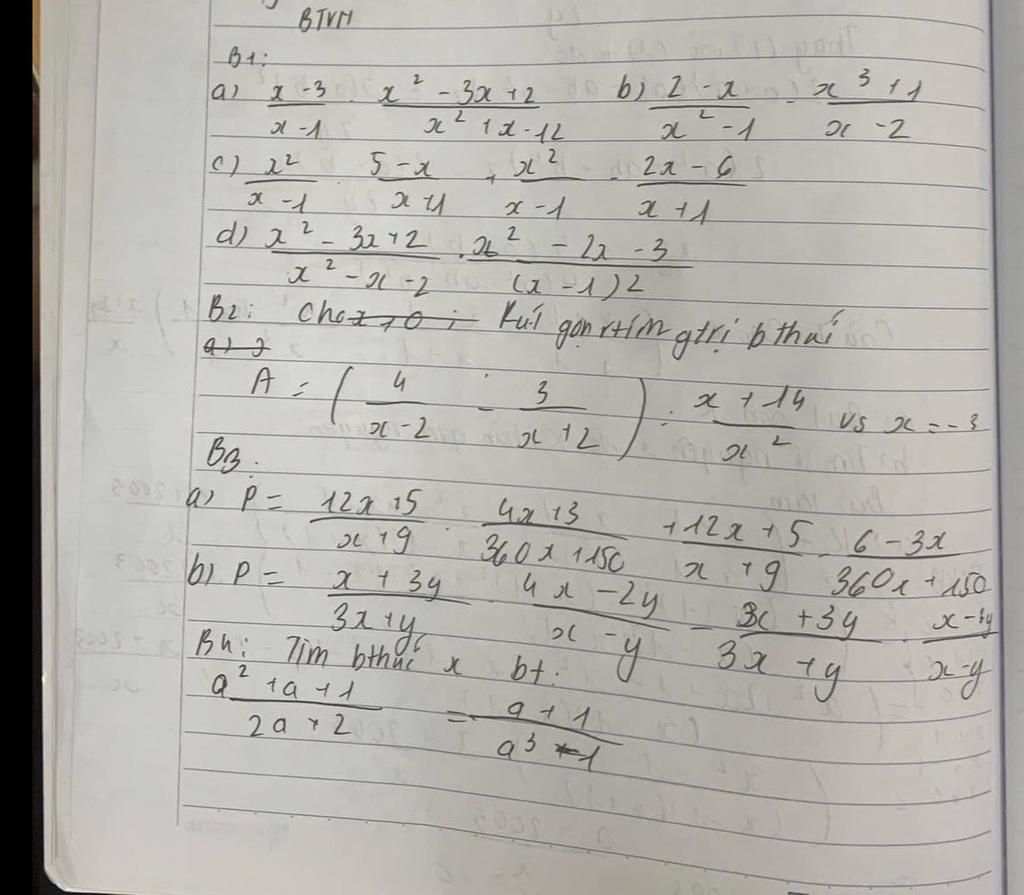 BTVN
B1:
a) \frac{x-3}{x-1} . \frac{x^2-3x+2}{x^2+x-12} b) \frac{2-x}{x^2-1} . \frac{x^3+1}{x-2}
c) \frac{x^2}{x-1} . \frac{5-x}{x+1} + \frac{x^2}{x-1} . \frac{2x-6}{x+1}
d) \frac{x^2-3x+2}{x^2-x-2} . \frac{x^2-2x-3}{(x-1)2}
B2: Rút gọn rtìm gtrị bthức
A = ( \frac{4}{x-2} - \frac{3}{x+2} ) : \frac{x+14}{x^2} vs x = -3
B3.
a) P = \frac{12x+5}{x+9} . \frac{4x+3}{360x+150} + \frac{12x+5}{x+9} . \frac{6-3x}{360x+150}
b) P = \frac{x+3y}{3x+y} . \frac{4x-2y}{x-y} - \frac{x+3y}{3x+y} . \frac{x-3y}{x-y}
B4: Tìm bthức x bt:
\frac{a^2+a+1}{2a+2} = \frac{a+1}{a^3-1}